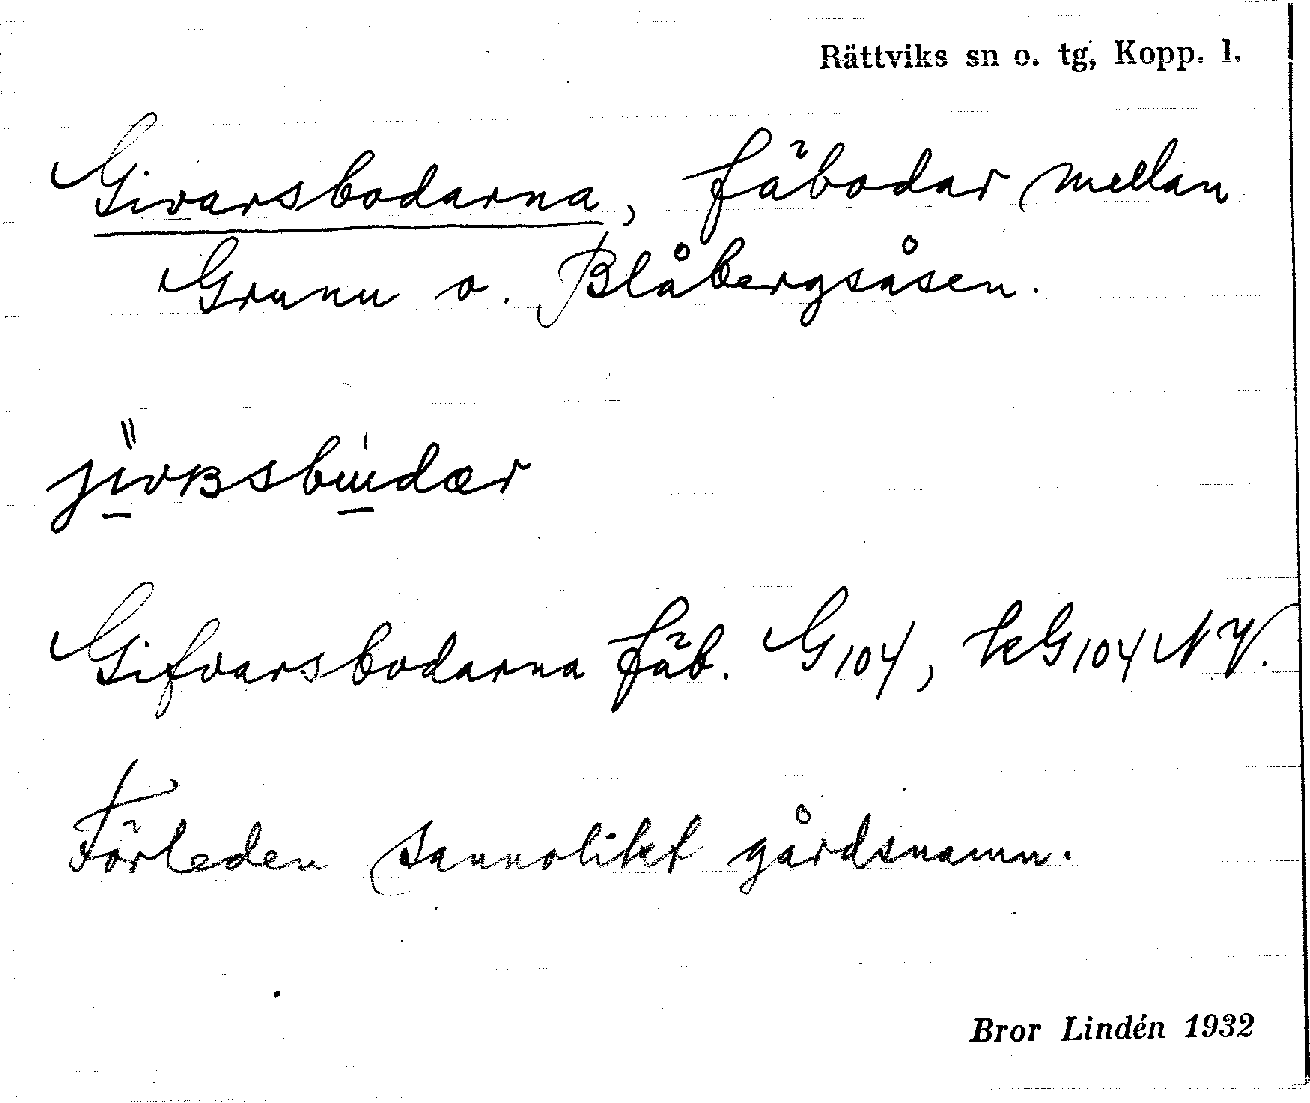 Rättviks sn o. tg, Kopp. l.
Givarsbodarna, fäbodar mellan
Grunu o. Blåbergsåsen.
Gifvarsbodarna fäb. G104, kG104 NV.
Förleden sannolikt gårdsnamn.
Bror Lindén 1932